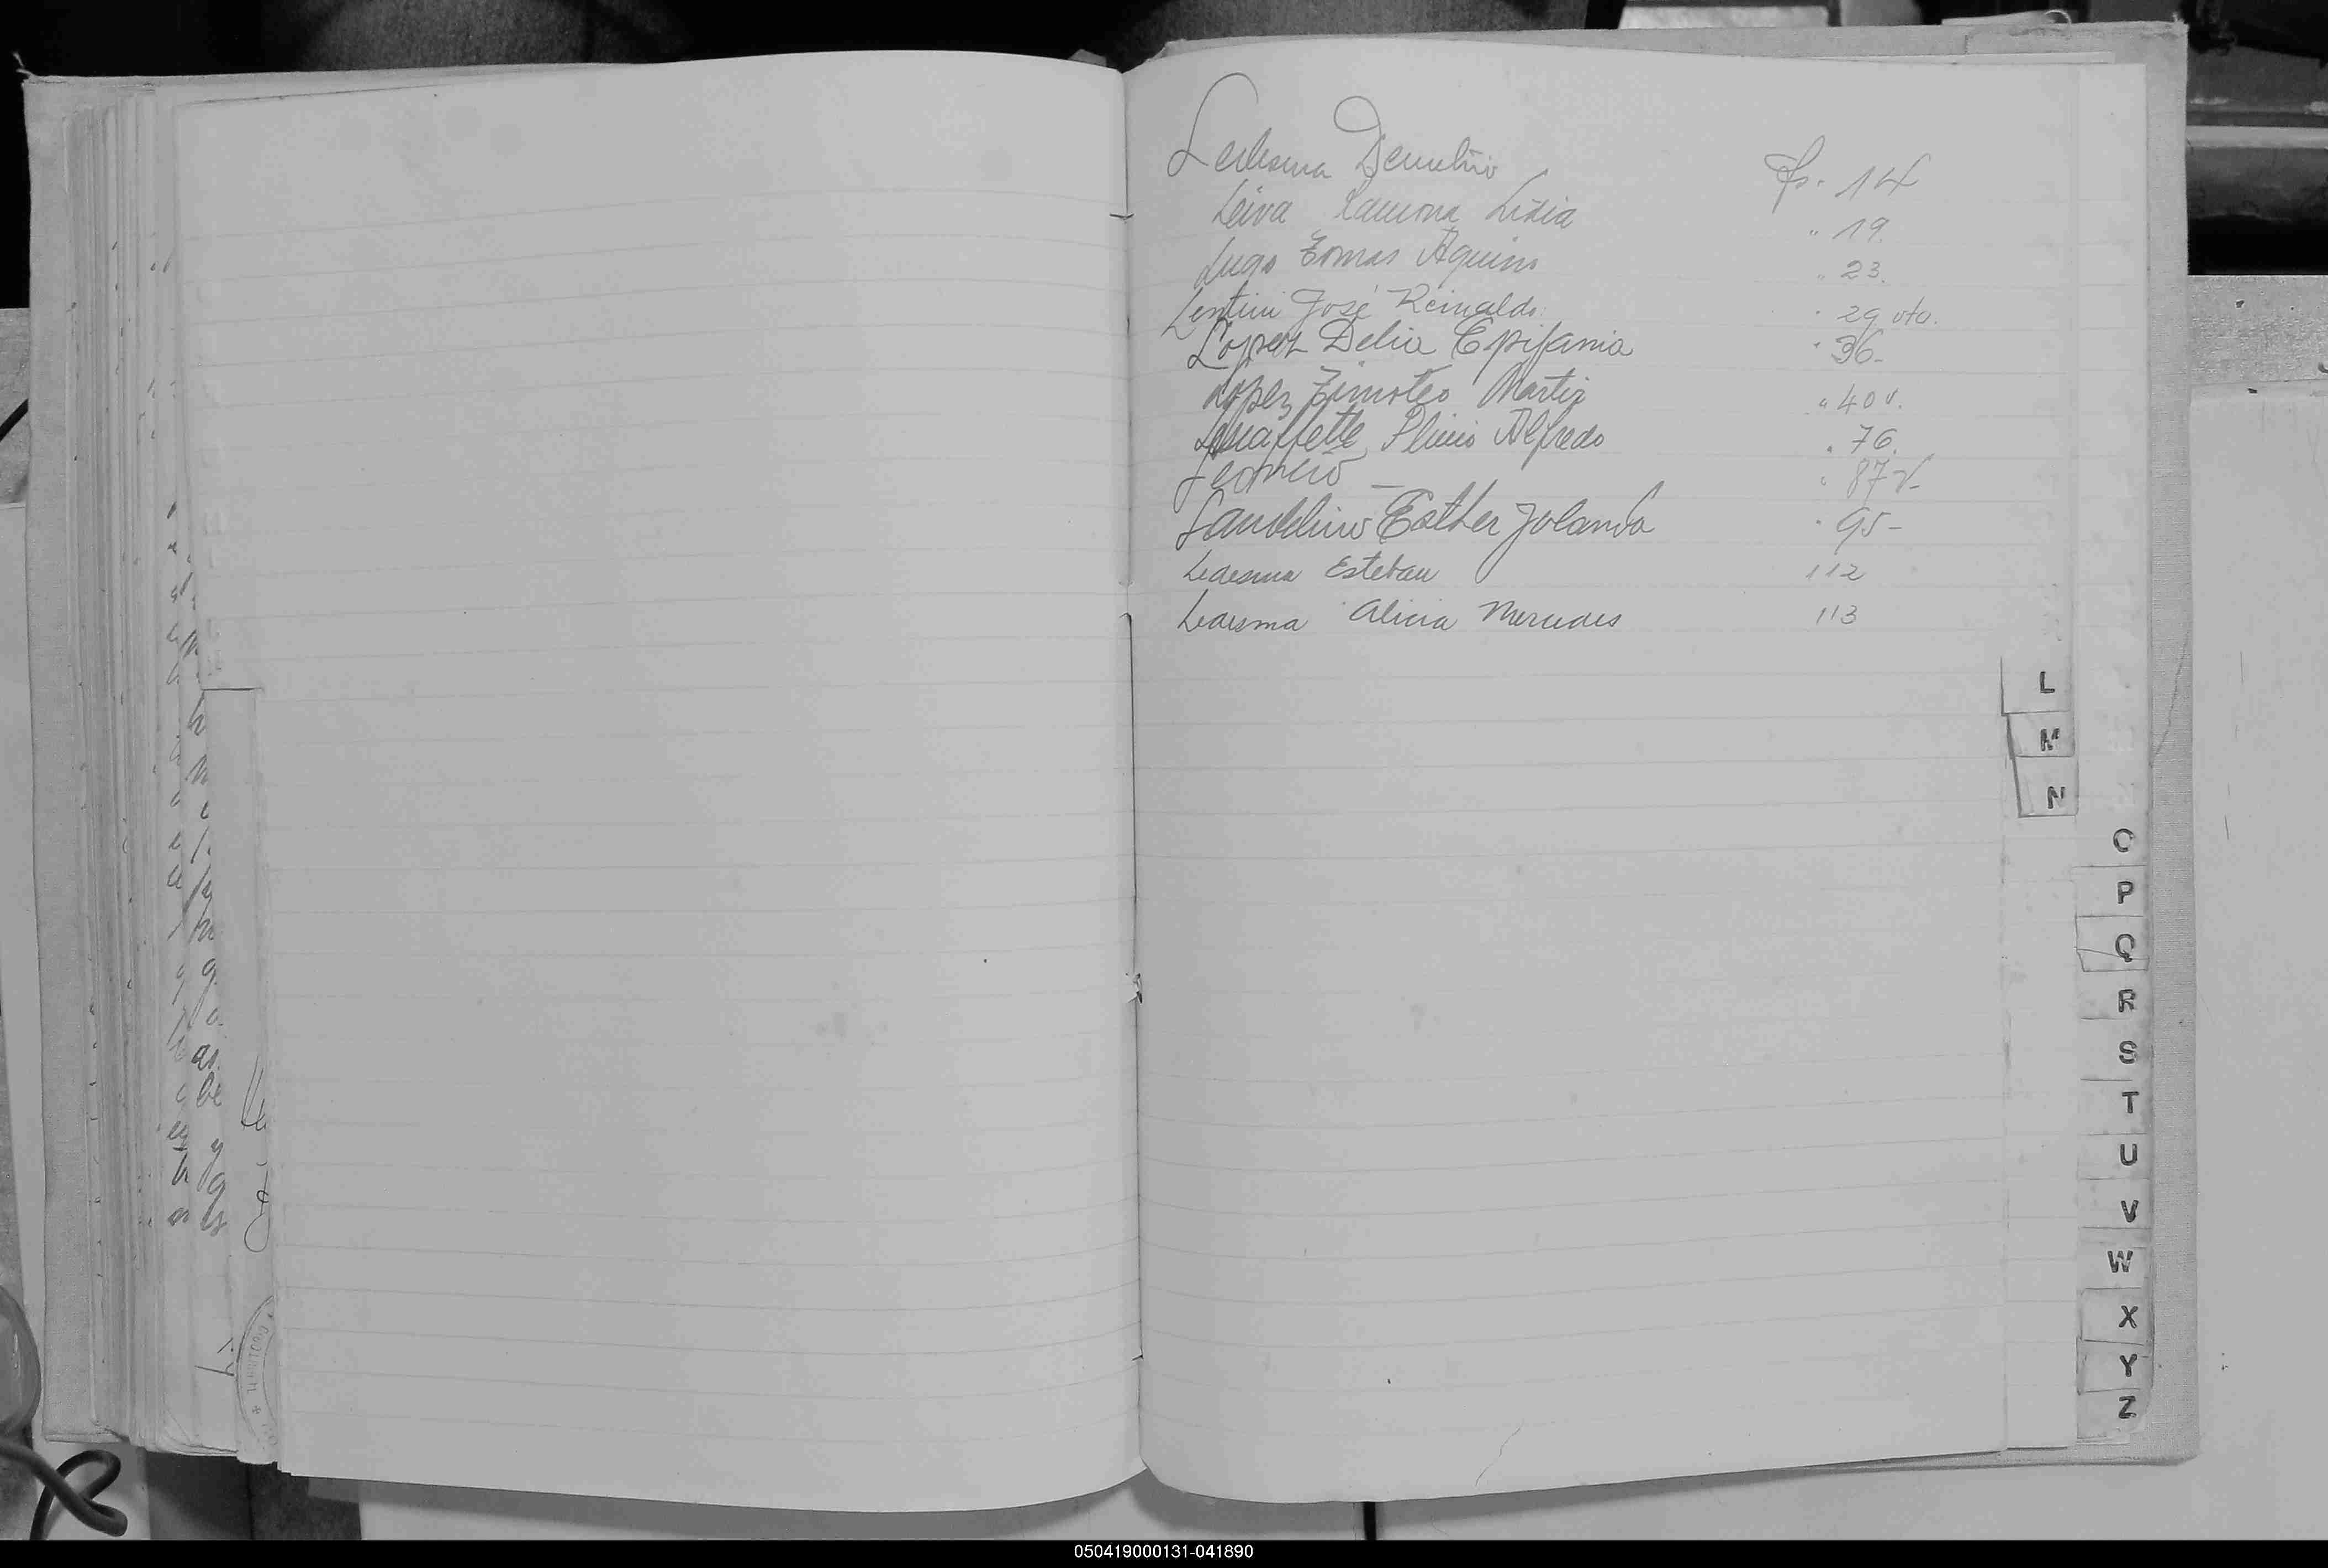 Ledesma Demetrio fs. 14
Leiva Ramona Lidia " 19.
Lugo Tomas Aquino " 23.
Lentini José Reinaldo. " 29 vto.
Lopez Delia Epifania " 36-
Lopez Timoteo Martir " 40 v.
Plinio Alfredo " 76.
Leoncio — " 87 v-
Esther Jolanda " 95-
Ledesma Esteban 112
Ledesma Alicia Mercedes 113
L
M
N
O
P
Q
R
S
T
U
V
W
X
Y
Z
050419000131-041890